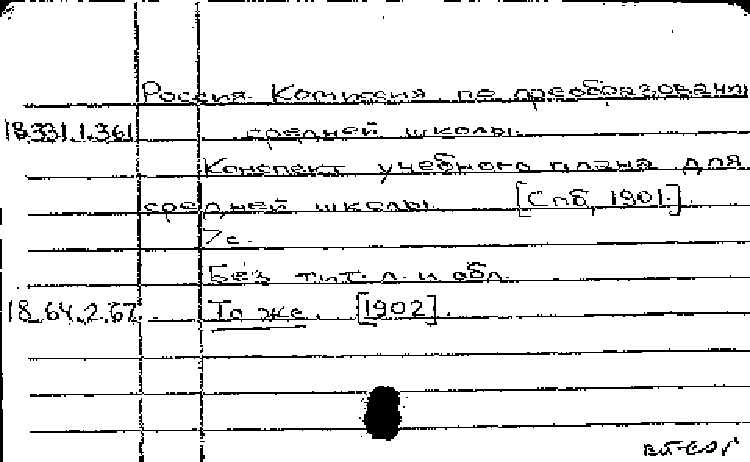 Россия. Комиссия по преобразованию
18.331.1.361 средней школы.
Конспект учебного плана для
средней школы. [Спб, 1901.]
7с.
Без тит. л. и обл.
18.64.2.37. То же. [1902].